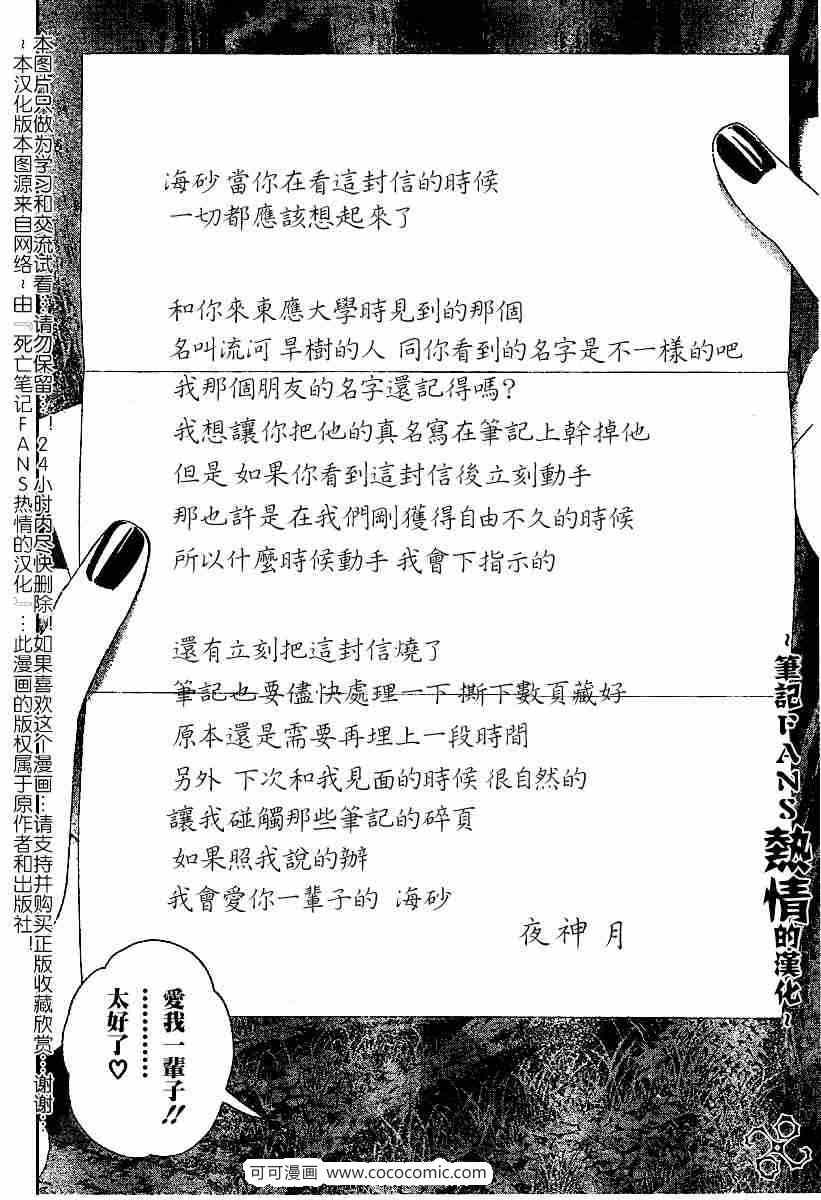 海砂 當你在看這封信的時候
一切都應該想起來了
和你來東應大學時見到的那個
名叫流河 旱樹的人 同你看到的名字是不一樣的吧
我那個朋友的名字還記得嗎?
我想讓你把他的真名寫在筆記上幹掉他
但是 如果你看到這封信後立刻動手
那也許是在我們剛獲得自由不久的時候
所以什麼時候動手 我會下指示的
還有立刻把這封信燒了
筆記也要儘快處理一下 撕下數頁藏好
原本還是需要再埋上一段時間
另外 下次和我見面的時候 很自然的
讓我碰觸那些筆記的碎頁
如果照我說的辦
我會愛你一輩子的 海砂
夜神 月
愛我一輩子!!
………
太好了♡
~筆記FANS熱情的漢化~
本图片只做为学习和交流试看…请勿保留…!24小时内尽快删除!!如果喜欢这个漫画…请支持并购买正版收藏欣赏…谢谢…
~本汉化版本图源来自网络~由『死亡笔记FANS热情的汉化』…此漫画的版权属于原作者和出版社!
可可漫画 www.cococomic.com